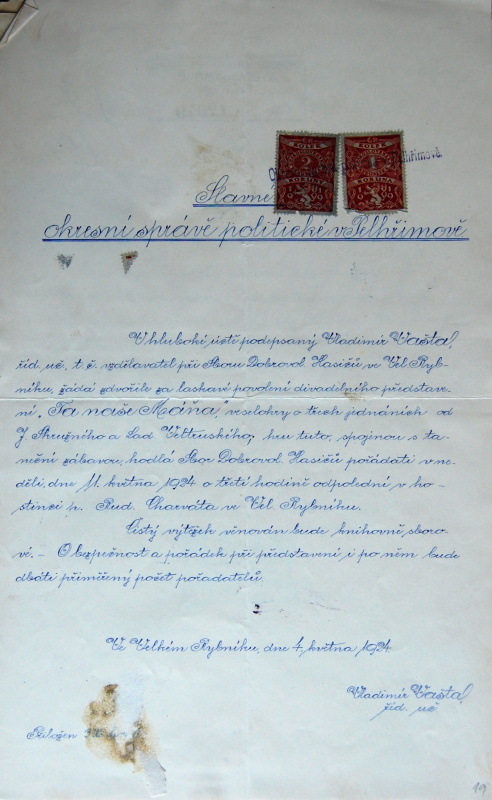 Slavné
okresní správě politické v Pelhřimově
V hluboké úctě podepsaný Vladimír Vaštal,
říd. uč. t. č. vzdělavatel při Sboru Dobrovol. Hasičů ve Vel. Ryb-
níku, žádá zdvořile za laskavé povolení divadelního představe-
ní „Ta naše Máňa“, veselohry o třech jednáních od
J. Stružného a Lad. Vettruského, hru tuto, spojenou s ta-
neční zábavou, hodlá Sbor Dobrovol. Hasičů pořádati v ne-
děli, dne 11. května 1924 o třetí hodině odpolední v ho-
stinci p. Rud. Charváta ve Vel. Rybníku.
Čistý výtěžek věnován bude knihovně sboro-
vé. - O bezpečnost a pořádek při představení i po něm bude
dbáti přiměřený počet pořadatelů.
Ve Velkém Rybníku, dne 4. května 1924
Vladimír Vaštal,
říd. uč.
KOLEK
2
KORUNY
19
KOLEK
1
KORUNA
19
Pelhřimově.
19